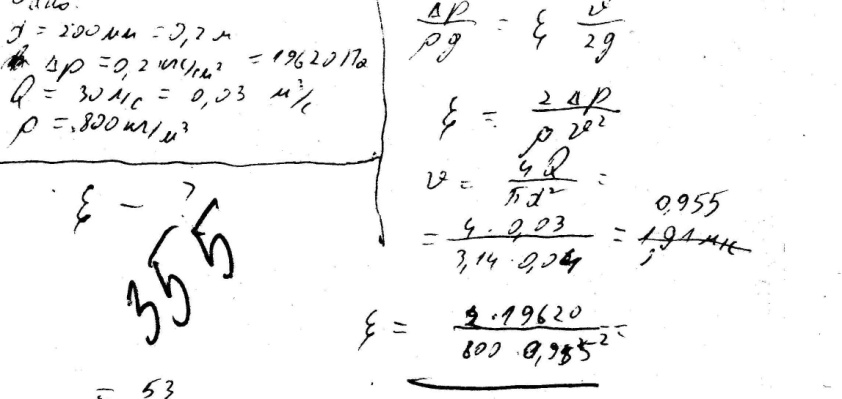 d = 200 мм = 0,2 м
Δp = 0,2 кг/см² = 19620 Па
Q = 30 л/с = 0,03 м³/с
ρ = 800 кг/м³
ξ - ?
355
= 53
Δp/ρg = ξ v²/2g
ξ = 2Δp/ρv²
v = 4Q/πd² =
= 4·0,03/3,14·0,04 = 0,955
ξ = 2·19620/800·0,955² =